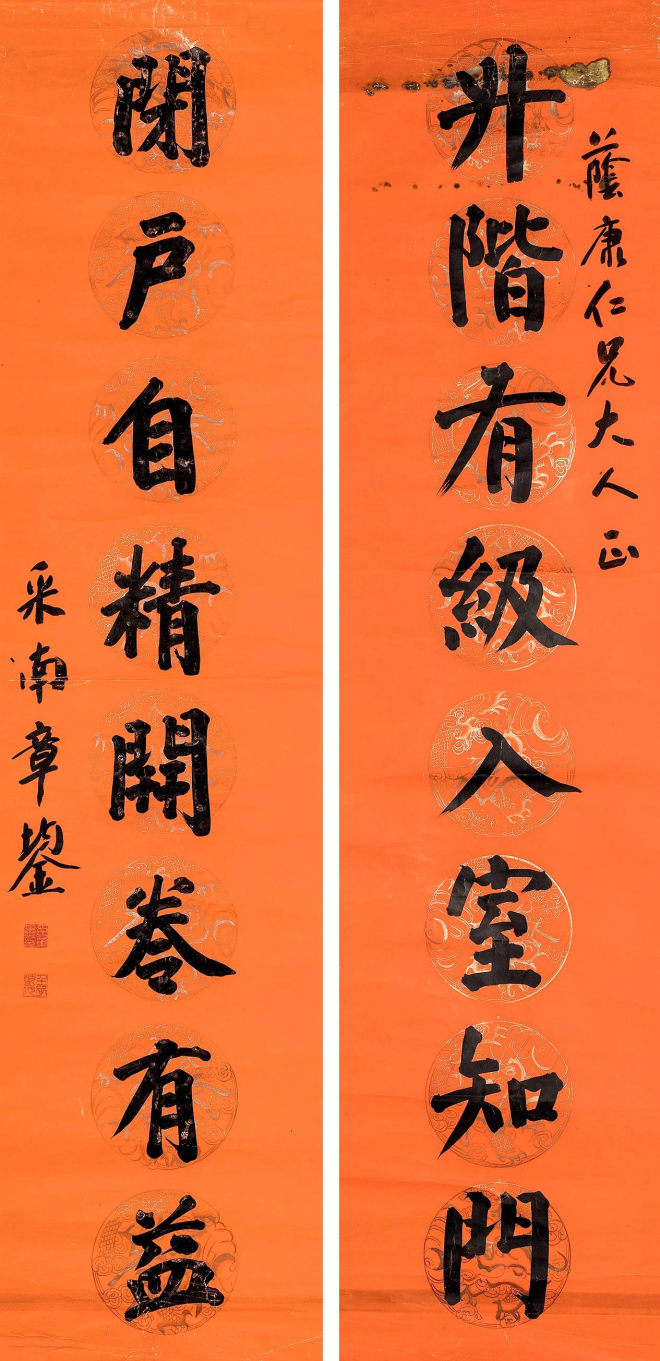 蔭康仁兄大人正
升階有級入室知門
閉户自精開卷有益
采南章鋆